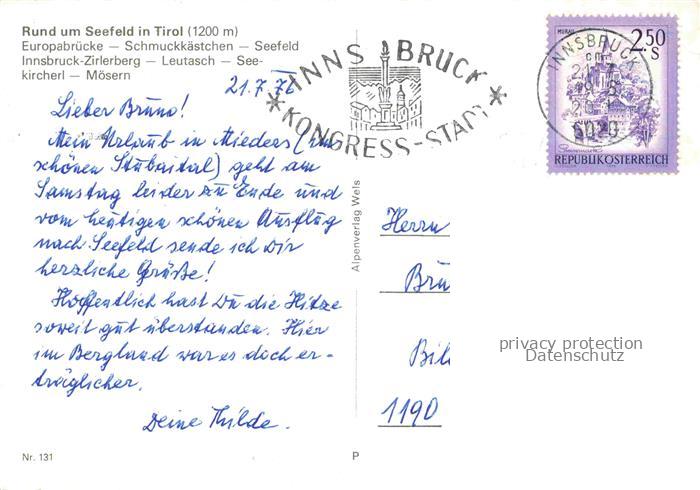 Rund um Seefeld in Tirol (1200 m)
Europabrücke — Schmuckkästchen — Seefeld
Innsbruck-Zirlerberg — Leutasch — See-
kircherl — Mösern
21.7.76
Lieber Bruno!
Mein Urlaub in Mieders (im
schönen Stubaital) geht am
Samstag leider zu Ende und
vom heutigen schönen Ausflug
nach Seefeld sende ich Dir
herzliche Grüße!
Hoffentlich hast Du die Hitze
soweit gut überstanden. Hier
im Bergland war es doch er-
träglicher.
Deine Thilde.
Nr. 131
Alpenverlag Wels
P
INNSBRUCK
KONGRESS-STADT
MURAU
2.50
S
INNSBRUCK
6020
REPUBLIK ÖSTERREICH
Herrn
Bru
Bil
1190
privacy protection
Datenschutz